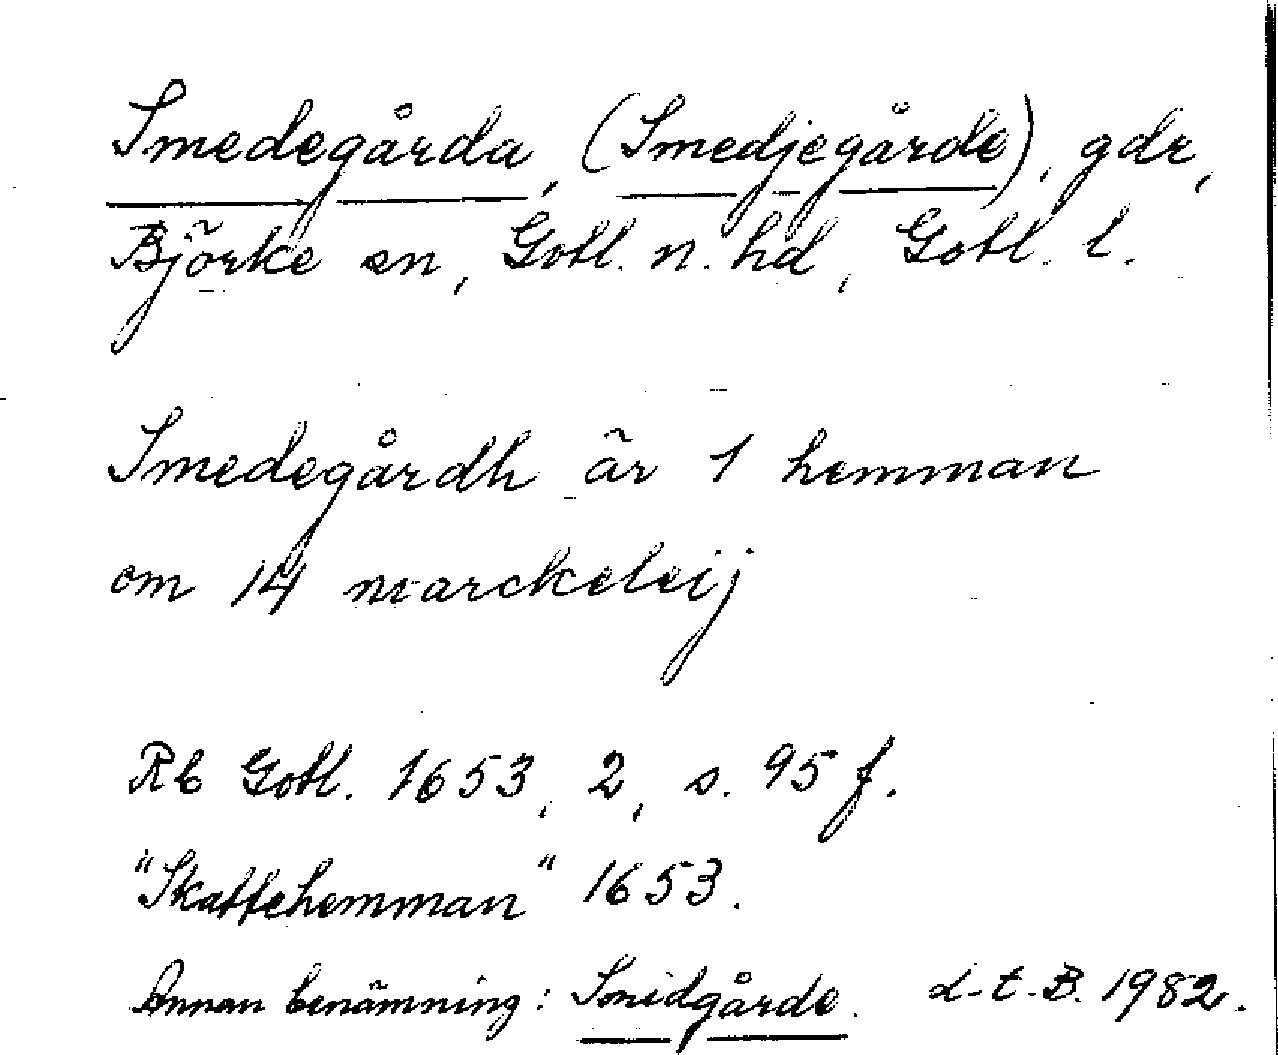 Smedegårda, (Smedjegårde), gdr,
Björke sn, Gotl. n. hd, Gotl. l.
Smedegårdh är 1 hemman
om 14 marckeleij
Rb Gotl. 1653, 2, s. 95 f.
"Skattehemman" 1653.
Annan benämning: Smidgårde. L.t.B. 1982.